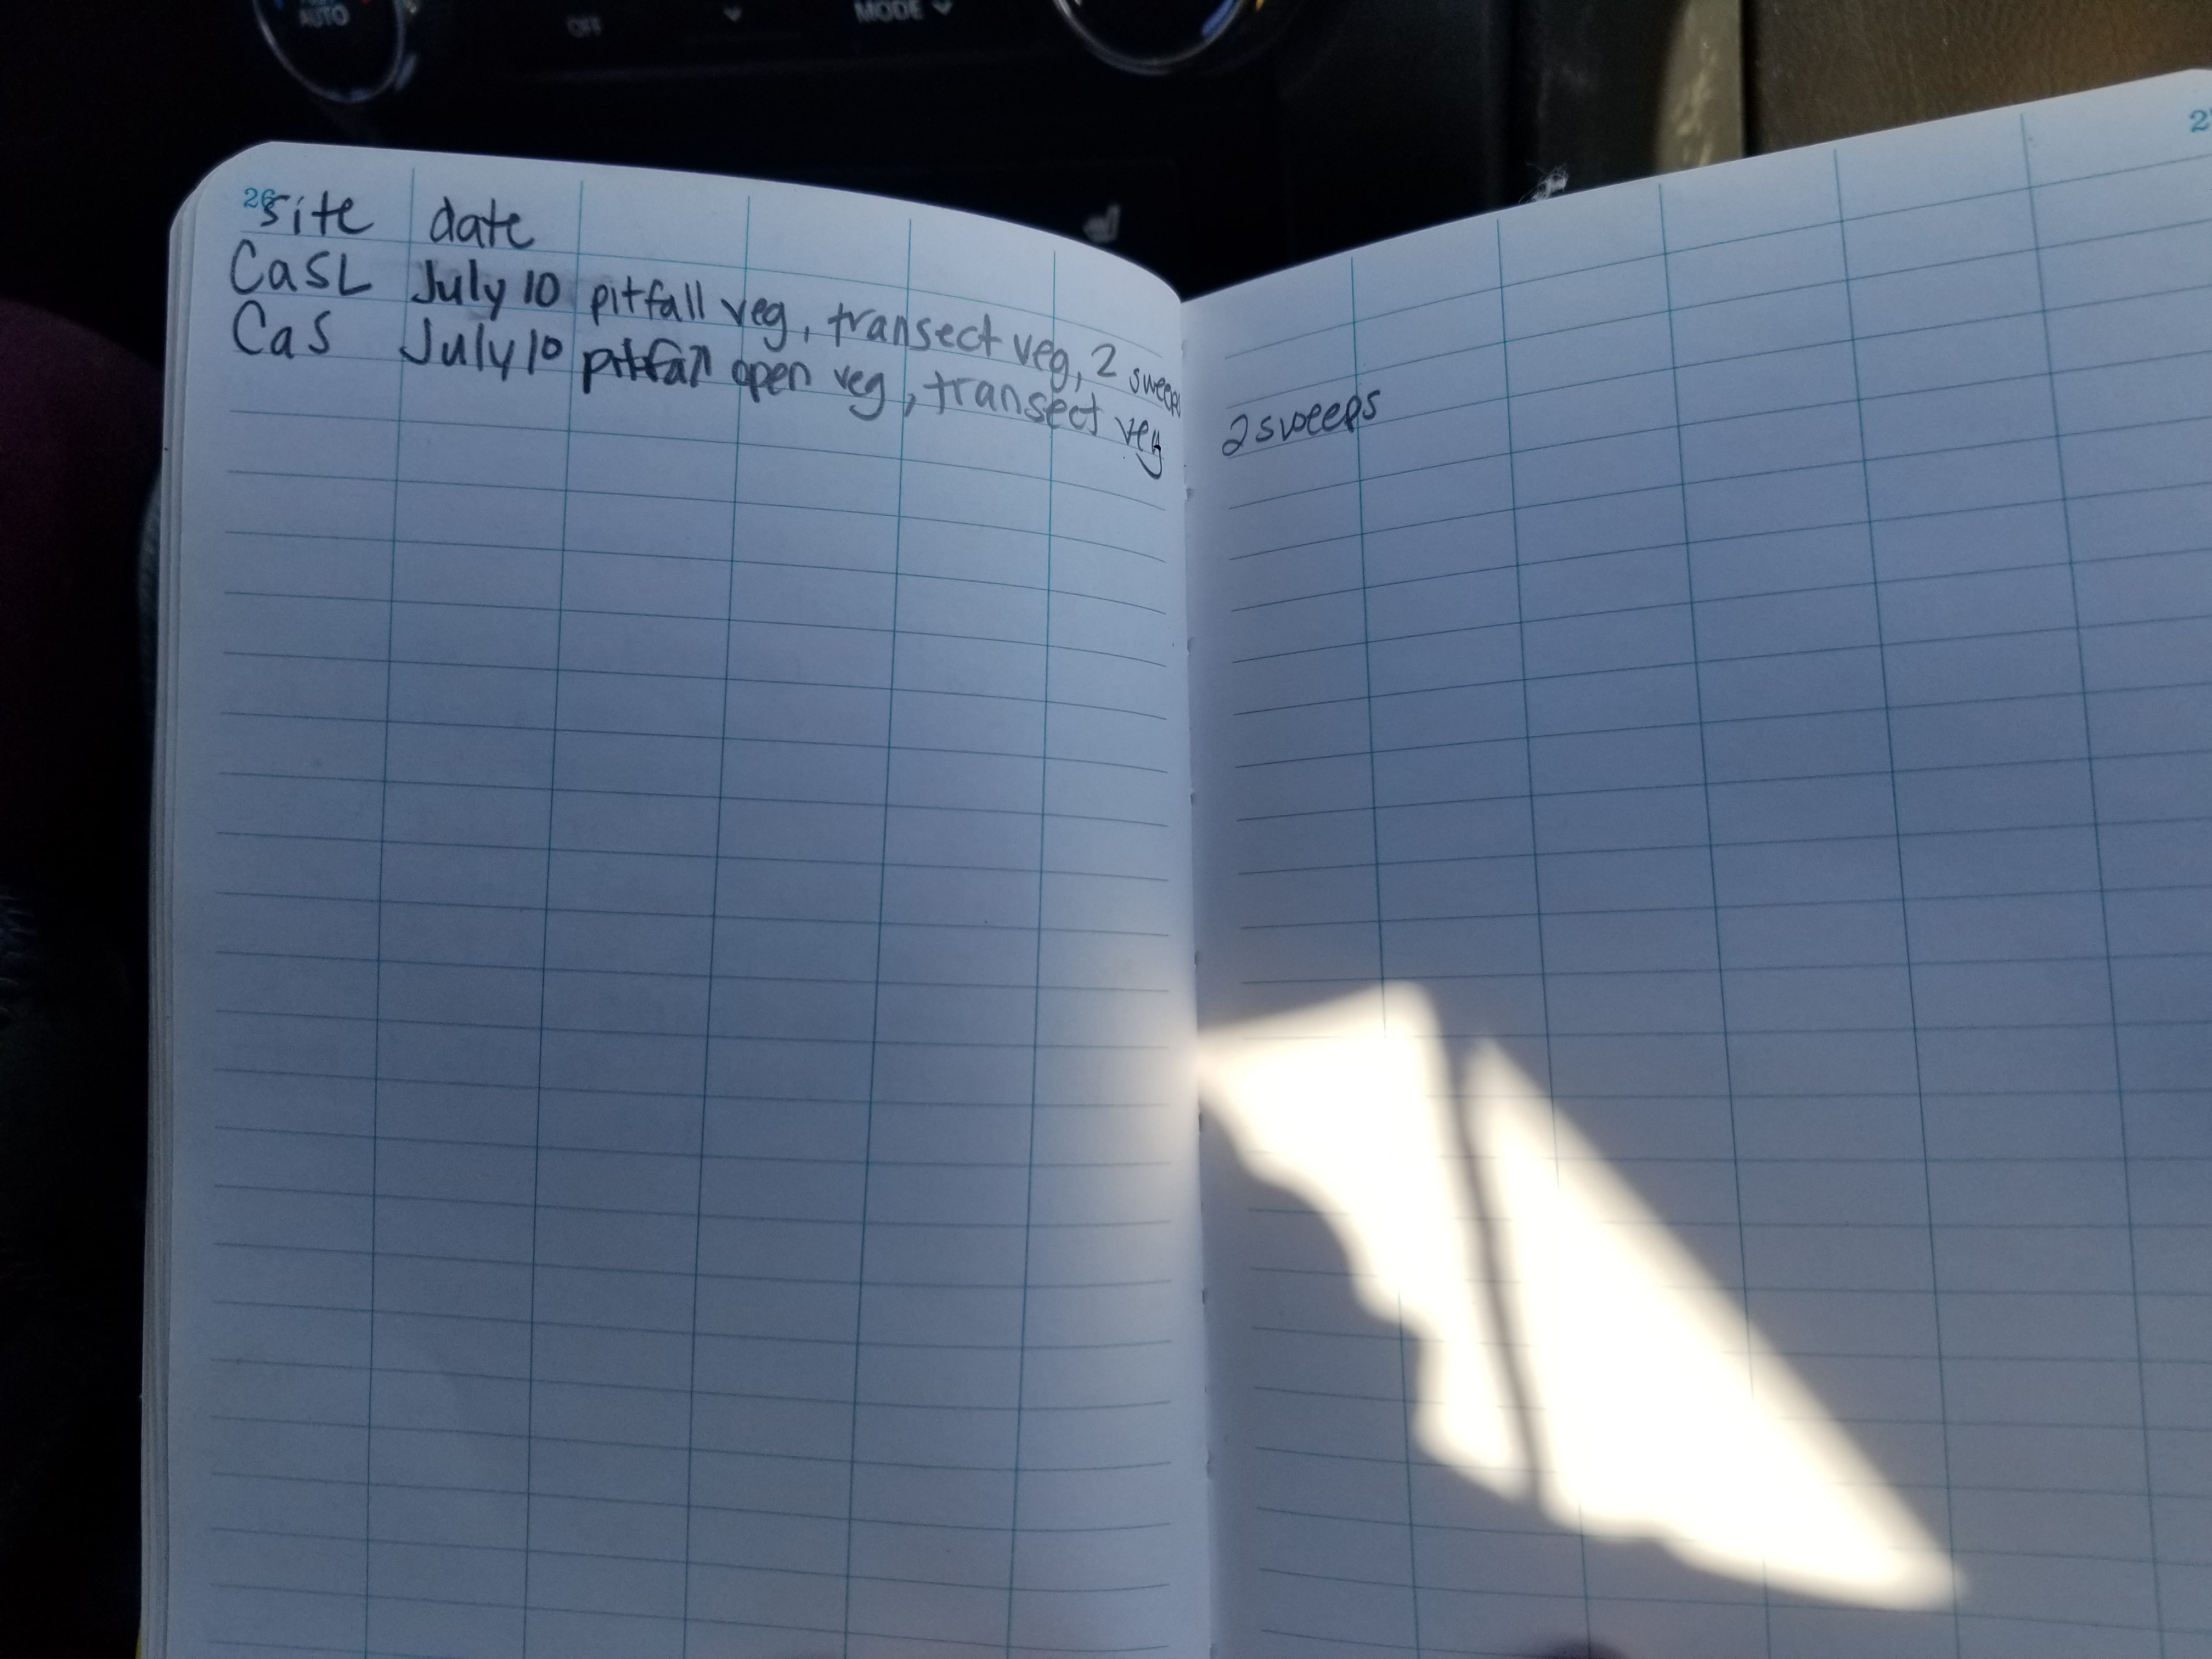 AUTO
OFF
MODE
26
site date
CaSL July 10 pitfall veg, transect veg, 2 sweeps
CaS July 10 pitfall open veg, transect veg 2 sweeps